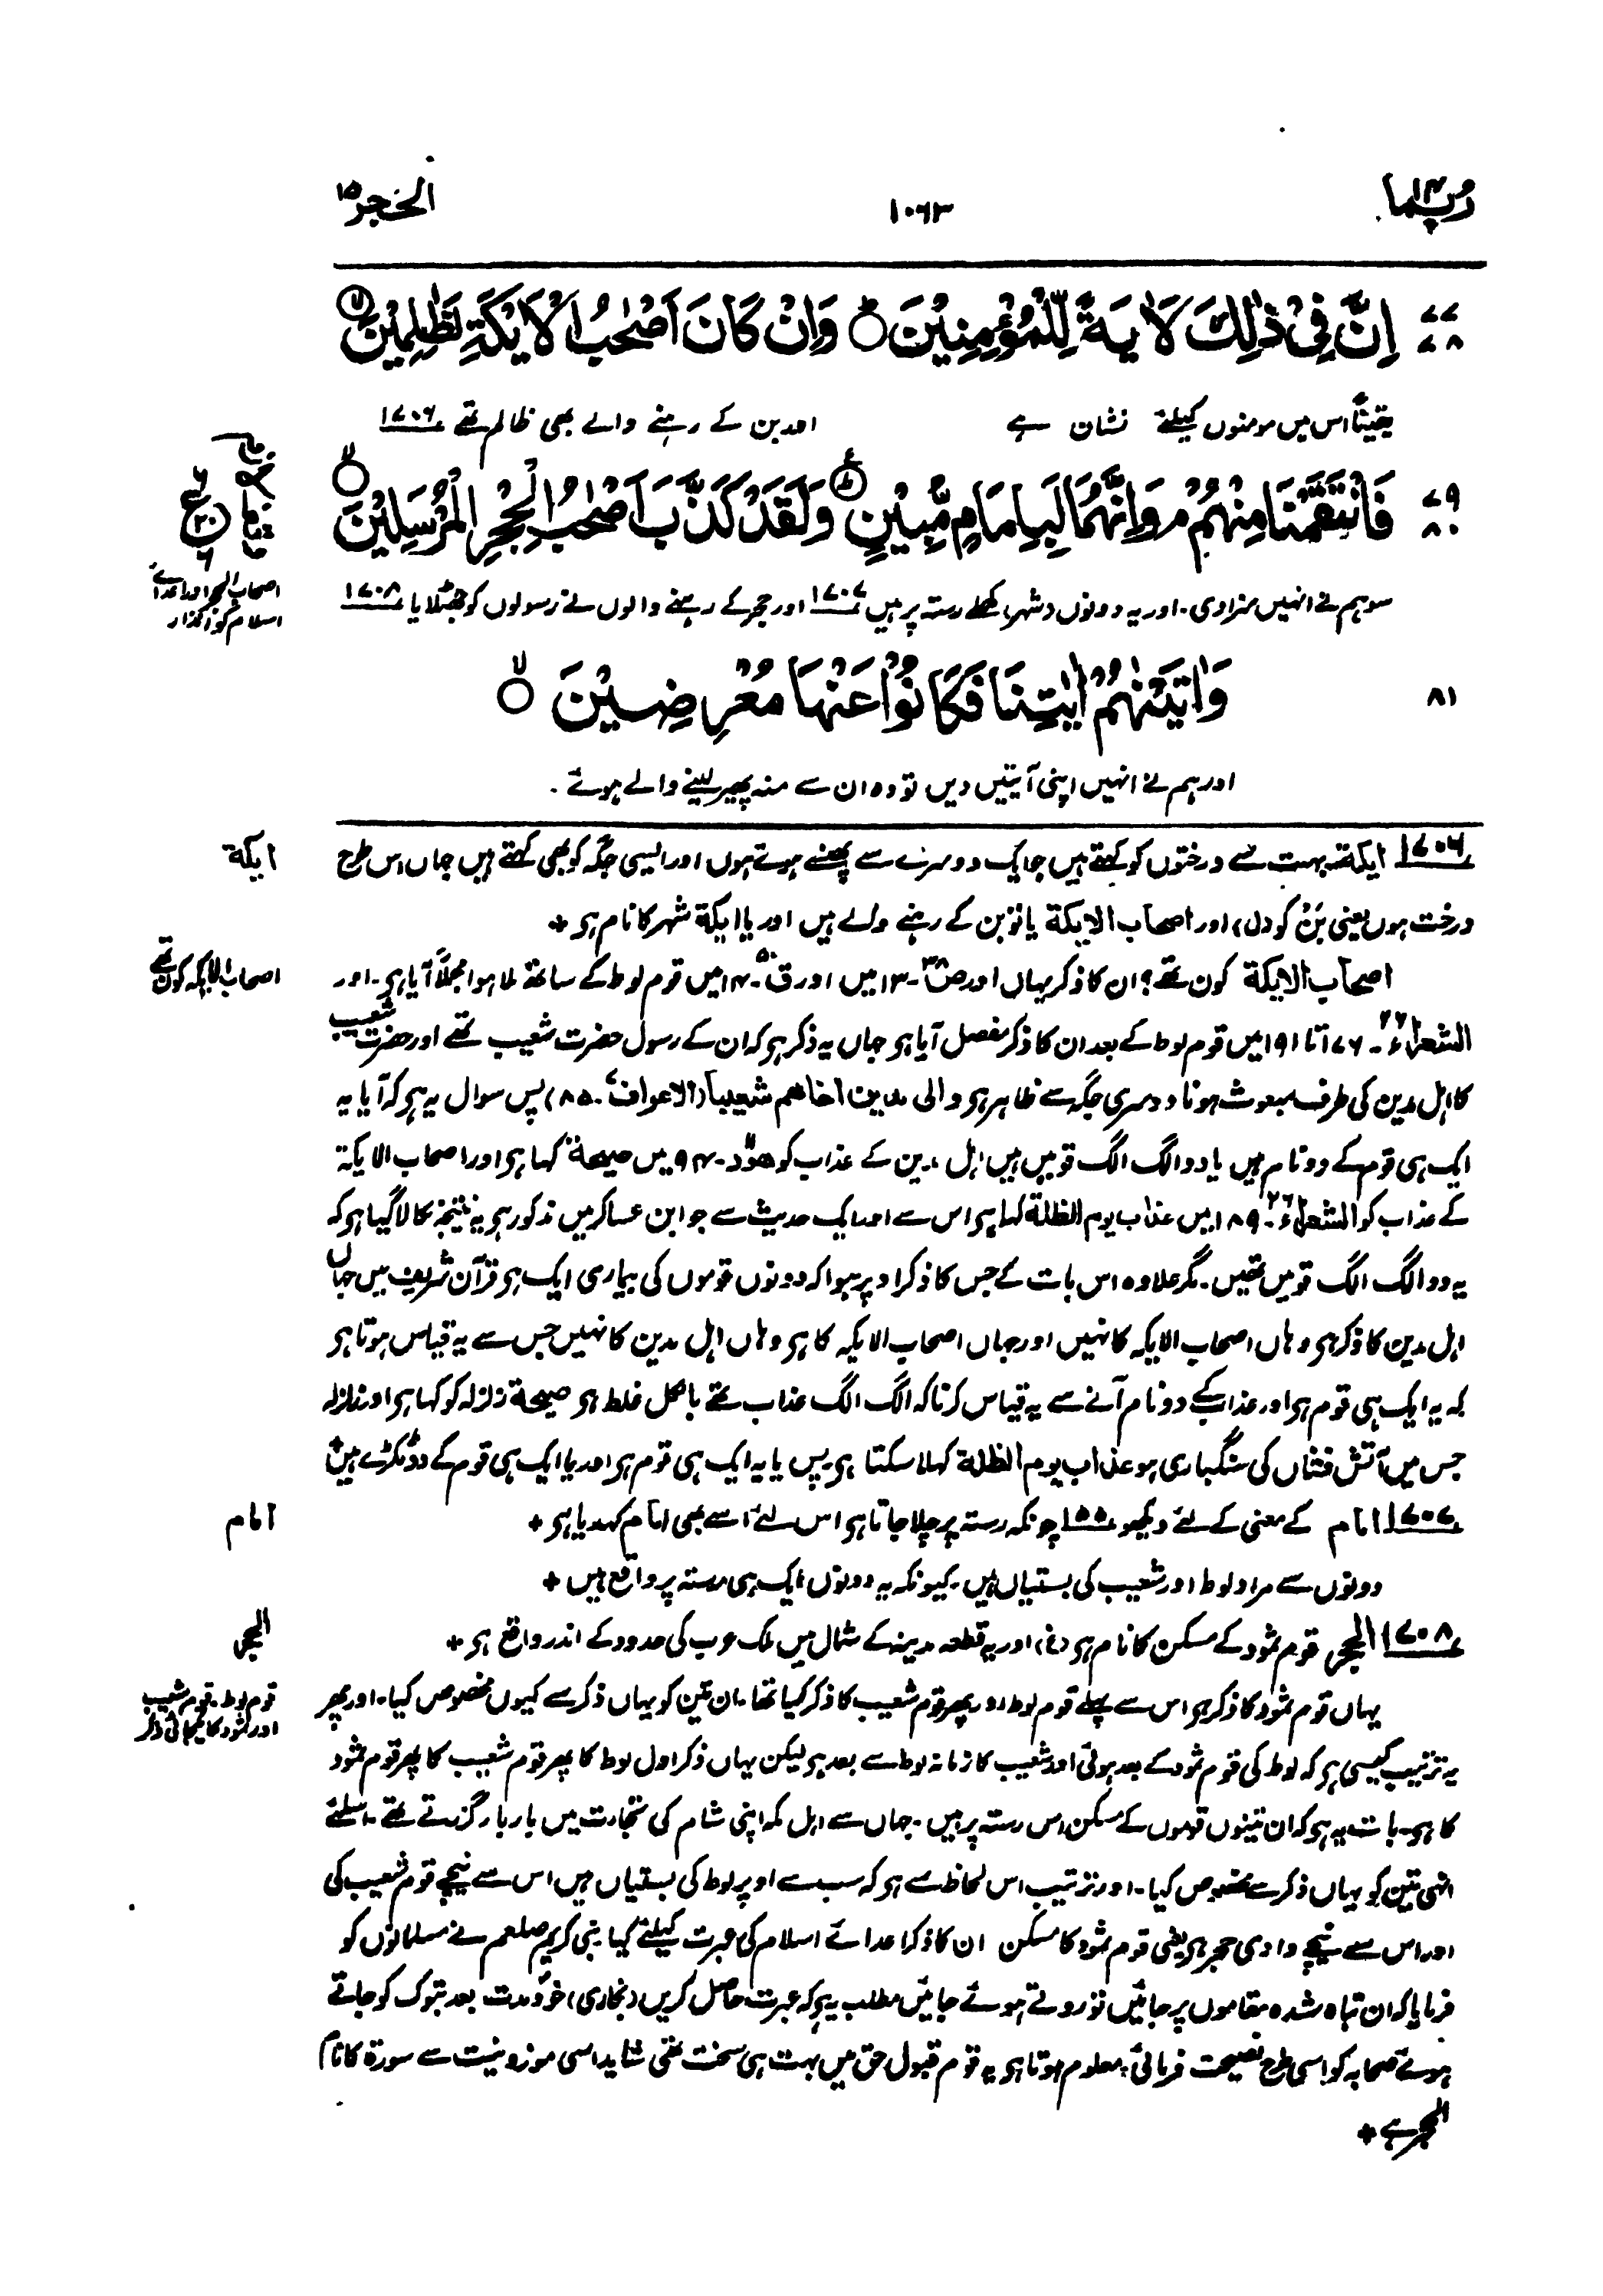 ربما ۱۴
۱۰۶۳
الحجر ۱۵
۷۷ ۷۸ اِنَّ فِیْ ذٰلِكَ لَاٰیَةً لِّلْمُؤْمِنِیْنَ ۞ وَاِنْ كَانَ اَصْحٰبُ الْاَیْكَةِ لَظٰلِمِیْنَ
یقیناً اس میں مومنوں کیلئے نشان ہے اور بن کے رہنے والے بھی ظالم تھے ۱۷۰۶
۷۹ ۸۰ فَانْتَقَمْنَا مِنْهُمْ م وَاِنَّهُمَا لَبِاِمَامٍ مُّبِیْنٍ ۞ وَلَقَدْ كَذَّبَ اَصْحٰبُ الْحِجْرِ الْمُرْسَلِیْنَ
اصحاب الحجر اور اعدائے
اسلام کو انذار
سو ہم نے انہیں سزا دی۔ اور یہ دونوں (شہر) کھلے رستہ پر ہیں ۱۷۰۷ اور حجر کے رہنے والوں نے رسولوں کو جھٹلایا ۱۷۰۸
۸۱ وَاٰتَیْنٰهُمْ اٰیٰتِنَا فَكَانُوْا عَنْهَا مُعْرِضِیْنَ
اور ہم نے انہیں اپنی آیتیں دیں تو وہ ان سے منہ پھیر لینے والے ہوئے۔
ایکة
۱۷۰۶ ایکة بہت سے درختوں کو کہتے ہیں جو ایک دوسرے سے پھنسے ہوتے ہوں اور ایسی جگہ کو بھی کہتے ہیں جہاں اس طرح
درخت ہوں یعنی بَن کو (ل)، اور اصحاب الایکة یا تو بن کے رہنے والے ہیں اور یا ایکة شہر کا نام ہی +
اصحاب الایکہ کون تھے
اصحاب الایکة کون تھے؟ ان کا ذکر یہاں اور صٓ ۳۸۔ ۱۳ میں اور قٓ ۵۰۔ ۱۴ میں قوم لوط کے ساتھ ملا ہوا مجملاً آیا ہی۔ اور
الشعراء ۲۶۔ ۱۷۶ تا ۱۹۱ میں قوم لوط کے بعد ان کا ذکر مفصل آیا ہی جہاں یہ ذکر ہی کہ ان کے رسول حضرت شعیب تھے اور حضرت شعیب
کا اہل مدین کی طرف مبعوث ہونا دوسری جگہ سے ظاہر ہی والی مدین اخاھم شعیبا (الاعراف ۷۔ ۸۵) پس سوال یہ ہی کہ آیا یہ
ایک ہی قوم کے دو نام ہیں یا دو الگ الگ قومیں ہیں اہل مدین کے عذاب کو ھود ۱۱۔ ۹۴ میں صیحة کہا ہی اور اصحاب الایکة
کے عذاب کو الشعراء ۲۶۔ ۱۸۹ میں عذاب یوم الظلة کہا ہی اس سے اور ایک حدیث سے جو ابن عساکر میں مذکور ہی یہ نتیجہ نکالا گیا ہی کہ
یہ دو الگ الگ قومیں تھیں۔ مگر علاوہ اس بات کے جس کا ذکر اوپر ہوا کہ دونوں قوموں کی بیماری ایک ہی قرآن شریف میں جہاں
اہل مدین کا ذکر ہی وہاں اصحاب الایکہ کا نہیں اور جہاں اصحاب الایکہ کا ہی وہاں اہل مدین کا نہیں جس سے یہ قیاس ہوتا ہی
کہ یہ ایک ہی قوم ہی اور عذاب کے دو نام آنے سے یہ قیاس کرنا کہ الگ الگ عذاب تھے بالکل غلط ہی صیحة زلزلہ کو کہا ہی اور زلزلہ
جس میں آتش فشاں کی سنگباری ہو عذاب یوم الظلة کہلا سکتا ہی۔ پس یا یہ ایک ہی قوم ہی اور یا ایک ہی قوم کے دو ٹکڑے ہیں +
امام
۱۷۰۷ امام کے معنی کے لئے دیکھو ۱۵۵ چونکہ رستہ پر چلا جاتا ہی اس لئے اسے بھی امام کہدیا ہی +
دونوں سے مراد لوط اور شعیب کی بستیاں ہیں۔ کیونکہ یہ دونوں ایک ہی رستہ پر واقع ہیں +
الحجر
۱۷۰۸ الحجر قوم ثمود کے مسکن کا نام ہی (غ) اور یہ قطعہ مدینہ کے شمال میں ملک عرب کی حدود کے اندر واقع ہی +
قوم لوط۔ قوم شعیب
اور ثمود کا یکجائی ذکر
یہاں قوم ثمود کا ذکر ہی اس سے پہلے قوم لوط اور پھر قوم شعیب کا ذکر کیا تھا۔ ان تین کو یہاں ذکر سے کیوں مخصوص کیا۔ اور پھر
یہ ترتیب کیسی ہی کہ لوط کی قوم ثمود کے بعد ہوئی اور شعیب کا زمانہ لوط سے بعد ہی لیکن یہاں ذکر اول لوط کا پھر قوم شعیب کا پھر قوم ثمود
کا ہی۔ بات یہ ہی کہ ان تینوں قوموں کے مسکن اس رستہ پر ہیں۔ جہاں سے اہل مکہ اپنی شام کی تجارت میں بار بار گزرتے تھے۔ اسلئے
انہی تین کو یہاں ذکر سے مخصوص کیا۔ اور ترتیب اس لحاظ سے ہی کہ سب سے اوپر لوط کی بستیاں ہیں اس سے نیچے قوم شعیب کی
اور اس سے نیچے وادی حجر ہی یعنی قوم ثمود کا مسکن ان کا ذکر اعدائے اسلام کی عبرت کیلئے کیا۔ نبی کریم صلعم نے مسلمانوں کو
فرمایا کہ ان تباہ شدہ مقاموں پر جائیں تو روتے ہوئے جائیں مطلب یہ ہی کہ عبرت حاصل کریں (بخاری) خود مدت بعد تبوک کو جاتے
ہوئے صحابہ کو اسی طرح نصیحت فرمائی، معلوم ہوتا ہی یہ قوم قبول حق میں بہت ہی سخت تھی شاید اسی موزونیت سے سورۃ کا نام
الحجر ہے +